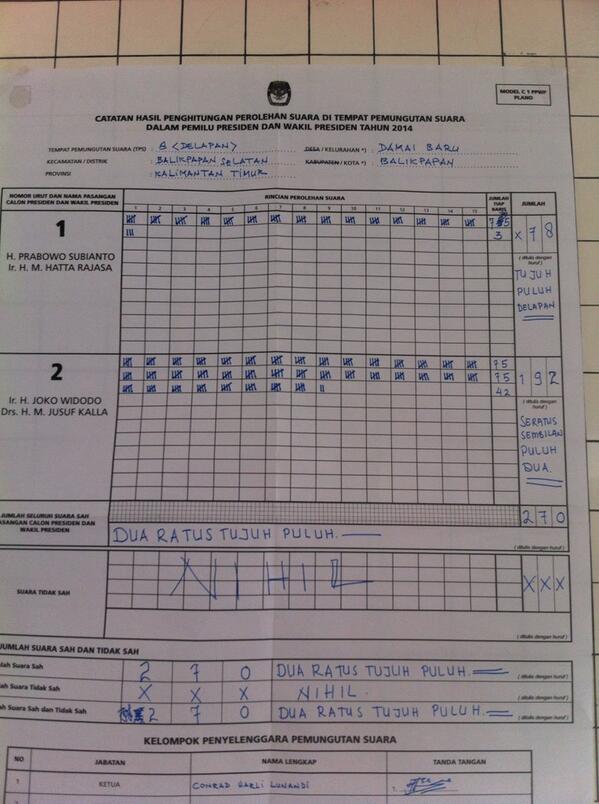 MODEL C 1 PPWP
PLANO
CATATAN HASIL PENGHITUNGAN PEROLEHAN SUARA DI TEMPAT PEMUNGUTAN SUARA
DALAM PEMILU PRESIDEN DAN WAKIL PRESIDEN TAHUN 2014
TEMPAT PEMUNGUTAN SUARA (TPS) : 8 <DELAPAN> DESA / KELURAHAN *) : DAMAI BARU
KECAMATAN / DISTRIK : BALIKPAPAN SELATAN KABUPATEN / KOTA *) : BALIKPAPAN
PROVINSI : KALIMANTAN TIMUR
NOMOR URUT DAN NAMA PASANGAN CALON PRESIDEN DAN WAKIL PRESIDEN
RINCIAN PEROLEHAN SUARA
1 2 3 4 5 6 7 8 9 10 11 12 13 14 15
JUMLAH TIAP BARIS
JUMLAH
1
H. PRABOWO SUBIANTO
Ir. H. M. HATTA RAJASA
75
3
X 7 8
(ditulis dengan huruf)
TUJUH
PULUH
DELAPAN
2
Ir. H. JOKO WIDODO
Drs. H. M. JUSUF KALLA
75
75
42
1 9 2
(ditulis dengan huruf)
SERATUS
SEMBILAN
PULUH
DUA.
JUMLAH SELURUH SUARA SAH
PASANGAN CALON PRESIDEN DAN
WAKIL PRESIDEN
2 7 0
DUA RATUS TUJUH PULUH.
(ditulis dengan huruf)
SUARA TIDAK SAH
NIHIL
X X X
(ditulis dengan huruf)
JUMLAH SUARA SAH DAN TIDAK SAH
lah Suara Sah 2 7 0 DUA RATUS TUJUH PULUH. (ditulis dengan huruf)
lah Suara Tidak Sah X X X NIHIL. (ditulis dengan huruf)
lah Suara Sah dan Tidak Sah 2 7 0 DUA RATUS TUJUH PULUH. (ditulis dengan huruf)
KELOMPOK PENYELENGGARA PEMUNGUTAN SUARA
NO JABATAN NAMA LENGKAP TANDA TANGAN
1 KETUA CONRAD 1.